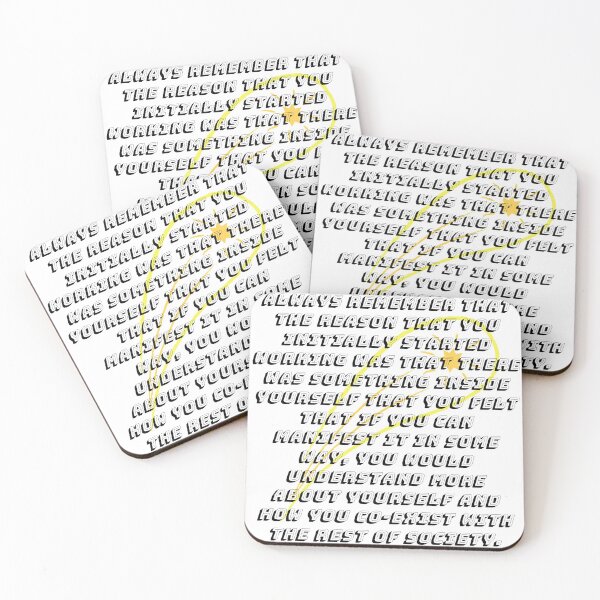 ALWAYS REMEMBER THAT
THE REASON THAT YOU
INITIALLY STARTED
WORKING WAS THAT THERE
WAS SOMETHING INSIDE
YOURSELF THAT YOU
CAN
ALWAYS REMEMBER THAT
THE REASON THAT YOU
INITIALLY STARTED
WORKING WAS THAT THERE
WAS SOMETHING INSIDE
YOURSELF THAT YOU FELT
THAT IF YOU CAN
MANIFEST IT IN SOME
WAY, YOU WOULD
WITH
ALWAYS REMEMBER THAT
THE REASON THAT YOU
INITIALLY STARTED
WORKING WAS THAT THERE
WAS SOMETHING INSIDE
YOURSELF THAT YOU FELT
THAT IF YOU CAN
MANIFEST IT IN SOME
WAY, YOU WOU
UNDERSTAND
ABOUT YOURS
HOW YOU CO-E
THE REST
ALWAYS REMEMBER THAT
THE REASON THAT YOU
INITIALLY STARTED
WORKING WAS THAT THERE
WAS SOMETHING INSIDE
YOURSELF THAT YOU FELT
THAT IF YOU CAN
MANIFEST IT IN SOME
WAY, YOU WOULD
UNDERSTAND MORE
ABOUT YOURSELF AND
HOW YOU CO-EXIST WITH
THE REST OF SOCIETY.